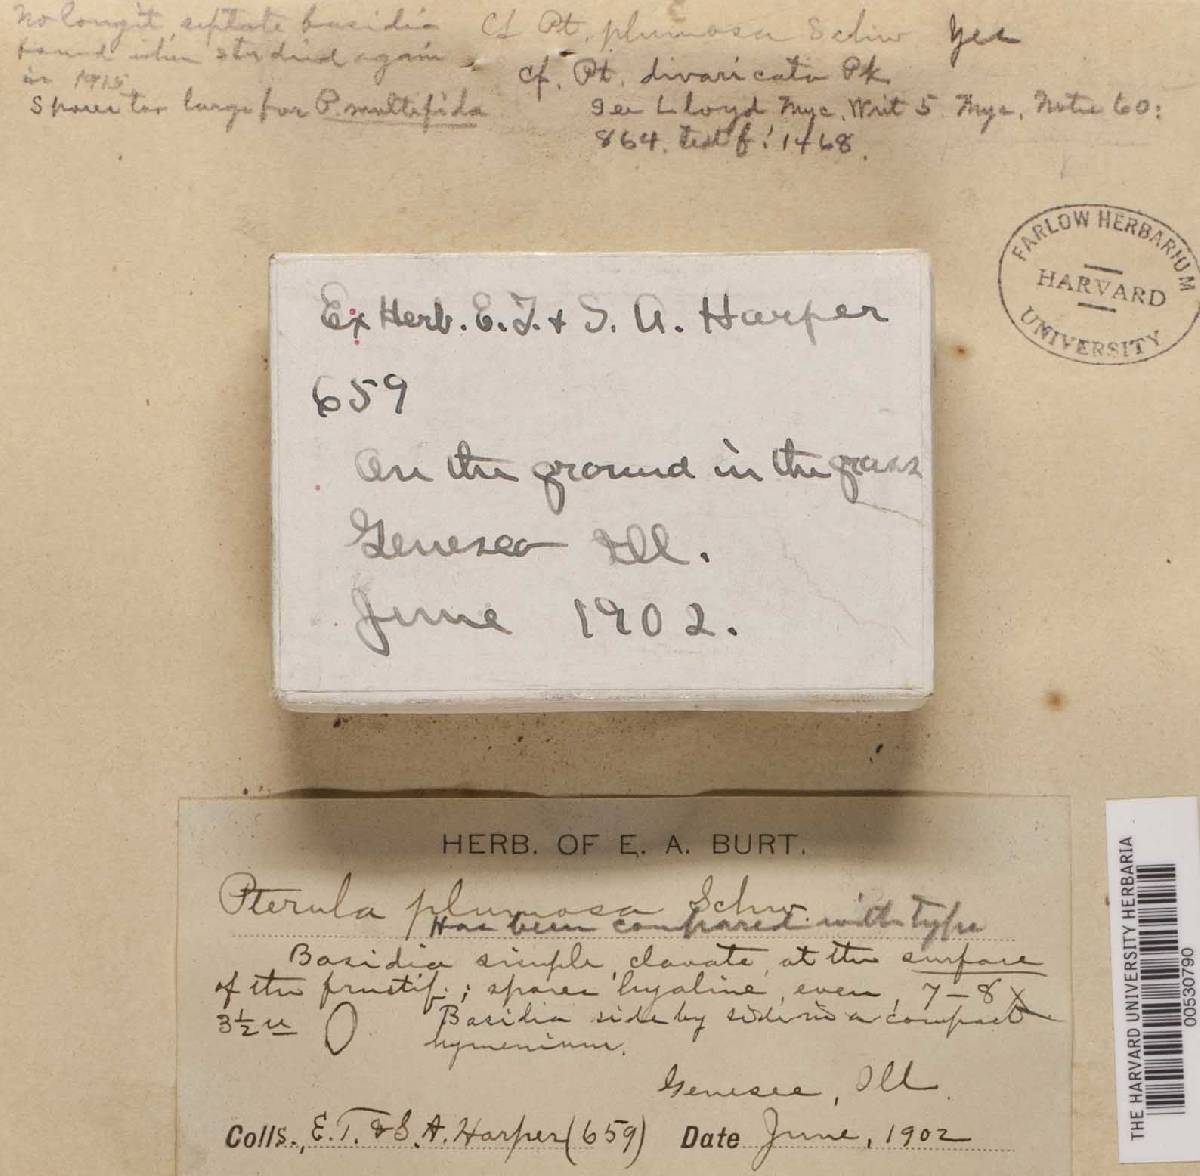 No longit. septate basidia
found when studied again
in 1915.
Spores too large for P. multifida
Cf Pt. plumosa Schw Yes
cf. Pt. divaricata Pk
See Lloyd Myc. Writ 5 Myc. Notes 60:
864. text f. 1468.
FARLOW HERBARIUM
HARVARD
UNIVERSITY
Ex Herb. E. T. & S. A. Harper
659
On the ground in the grass
Geneseo Ill.
June 1902.
HERB. OF E. A. BURT.
Pterula plumosa Schw.
Has been compared with type
Basidia simple, clavate, at the surface
of the fructif.; spores hyaline, even, 7–8 X
3½ u Basidia side by side in a compact
hymenium.
Genesee, Ill.
Colls. E. T. & S. A. Harper (659) Date June, 1902
THE HARVARD UNIVERSITY HERBARIA
00530790